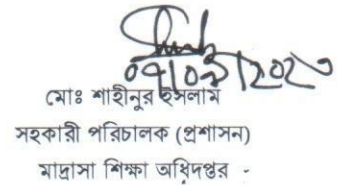 ০৭/০৯/২০২৩
মোঃ শাহীনুর ইসলাম
সহকারী পরিচালক (প্রশাসন)
মাদ্রাসা শিক্ষা অধিদপ্তর